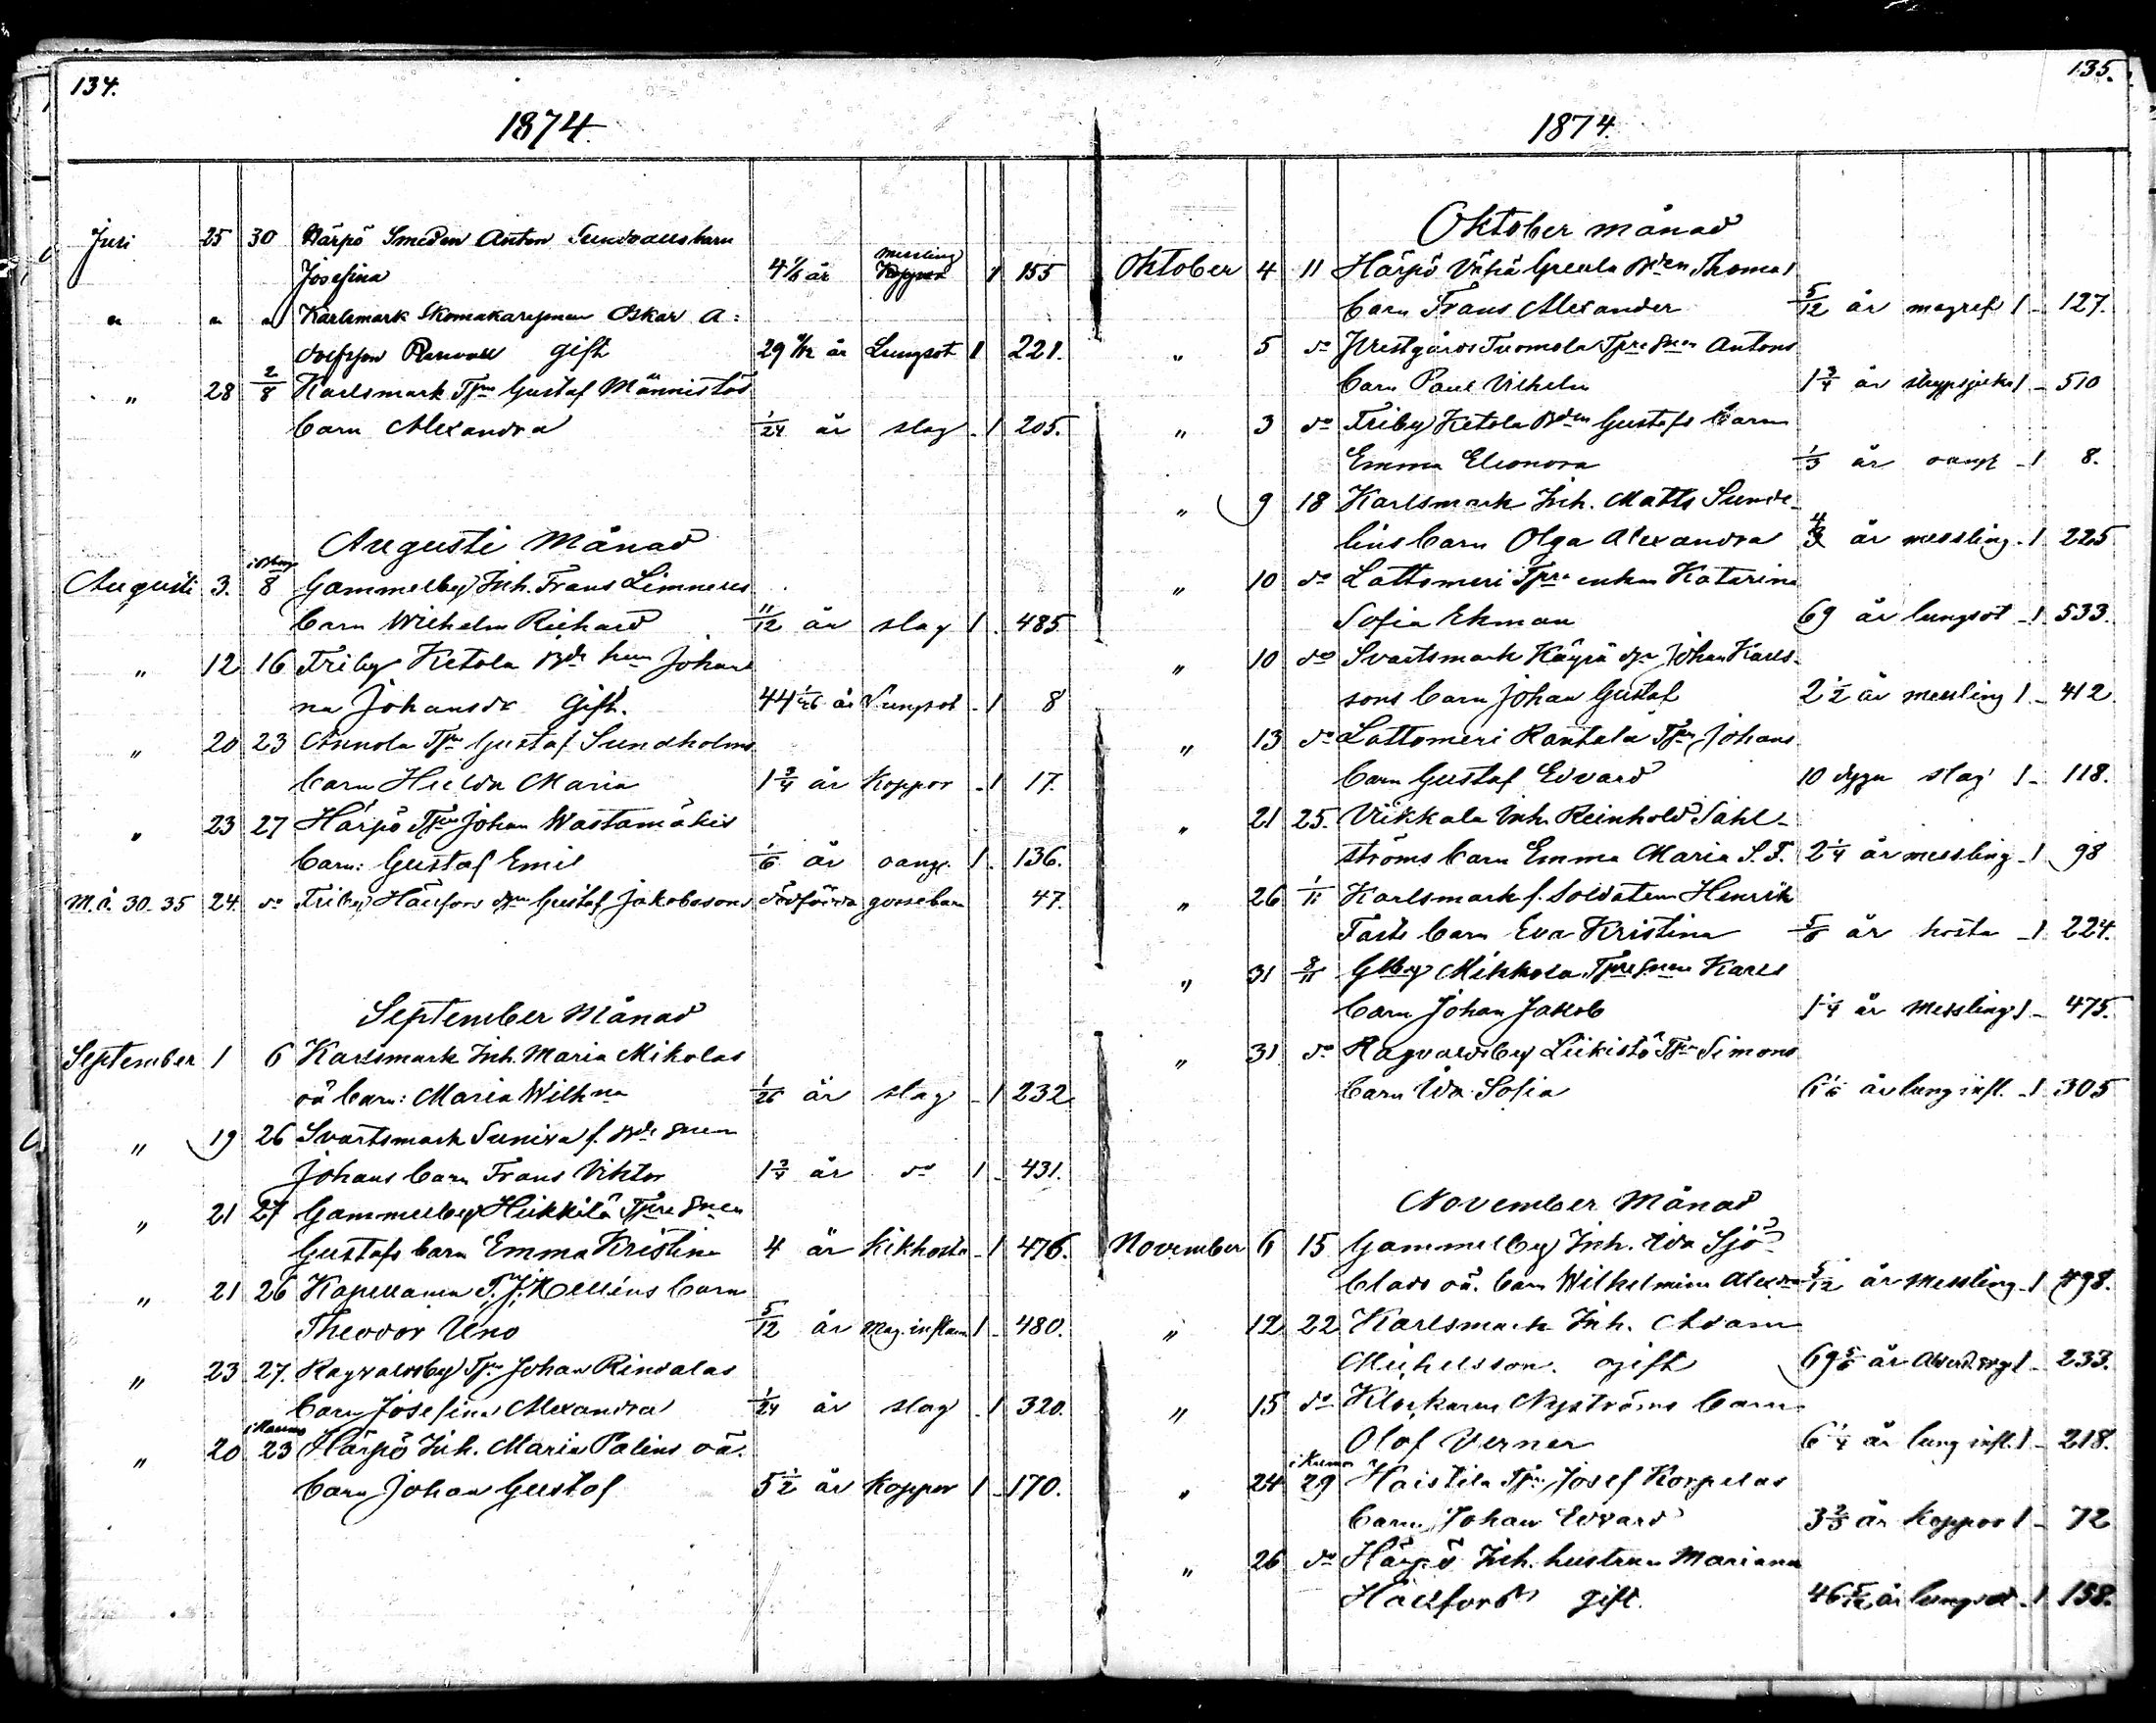 134.
1874.
Juli 25 30 Härpö Smeden Anton Sundvalls barn
Josefina 4 1/6 år messling Koppor 1 155
" " " Karlsmark Skomakare Oskar A:
dolfsson gift 29 år Lungsot 1 221.
" 28 2/8 Karlsmark Tjn Gustaf Männistös
barn Alexandra 1/24 år slag 1 205.
Augusti Månad
Augusti 3. 8 Gammelby Inh. Frans Limnells
barn Wilhelm Richard 11/12 år slag 1 485
" 12 16 Friby Ketola Bde hun Johan
na Johansdr Gift. 44 år Lungsot 1 8
" 20 23 Annola Tjn Gustaf Sundholms
barn Hilda Maria 1 3/4 år koppor 1 17.
" 23 27 Härpö Johan Wastamäkis
barn: Gustaf Emil 1/6 år oang. 1 136.
M.å. 30-35 24. do Friby Gustaf Jakobssons dödfödda gossebarn 47.
September Månad
September 1 6 Karlsmark Inh. Maria Mikolas
oä barn: Maria Wilhna 1/26 år slag 1 232
" 19 26 Svartsmark f. Bde
Johans barn Frans Viktor 1 3/4 år do 1 431.
" 21 27 Gammelby Heikkilä Tjre
Gustafs barn Emma Kristina 4 år kikhosta 1 476.
" 21 26 Kapellanen barn
Theodor Uno 5/12 år Mag. inflam 1 480.
" 23 27. Ragvaldsby Tjn Johan Rindalas
barn Josefina Alexandra 1/24 år slag 1 320.
" 20 23 Härpö Inh. Maria Palins oä.
barn Johan Gustaf 5 1/2 år koppor 1 170.
135.
1874.
Oktober månad
Oktober 4 11 Härpö Bden Thomas
barn Frans Alexander 5/12 år magref 1 127.
" 5 do Tuomola Antons
barn Paul Vilhelm 1 3/4 år 1 510
" 3 do Friby Ketola Bden Gustafs barn
Emma Eleonora 1/3 år oangf 1 8.
" 9 18 Karlsmark Inh. Matts Sunde-
lins barn Olga Alexandra år messling 1 225
" 10 do Lattomeri enkan Katarina
Sofia Ekman 69 år lungsot 1 533.
" 10 do Svartsmark Käyrä Johan Karls-
sons barn Johan Gustaf 2 1/2 år messling 1 412.
" 13 do Lattomeri Rantala Johans
barn Gustaf Edvard 10 dygn slag 1 118.
" 21 25. Vikkala Inh. Reinhold Sahl-
ströms barn Emma Maria S. F. 2 1/4 år messling 1 98
" 26 1/11 Karlsmark f. Soldaten Henrik
Fasts barn Eva Kristina 5/6 år hosta 1 224.
" 31 8/11 Glby Mikkola Karls
barn Johan Jakob 1 1/4 år Messling 1 475.
" 31 do Ragvaldsby Liikistö Simons
barn Ida Sofia 6 1/6 år lung infl. 1 305
November Månad
November 6 15 Gammelby Inh. Ida Sjö-
blads oä. barn Wilhelmina 5/12 år Messling 1 498.
" 12 22 Karlsmark Inh. Adam
Michelsson. gift 69 5/6 år 1 233.
" 15 do Klockaren Nyströms barn
Olof Verner 6 1/4 år lung infl. 1 218.
" 24 29 Haistila Josef Korpelas
barn Johan Edvard 3 2/3 år koppor 1 72
" 26 do Härpö Inh. hustrun Mariana
Hällfors gift. 46 år lungsot 1 158.